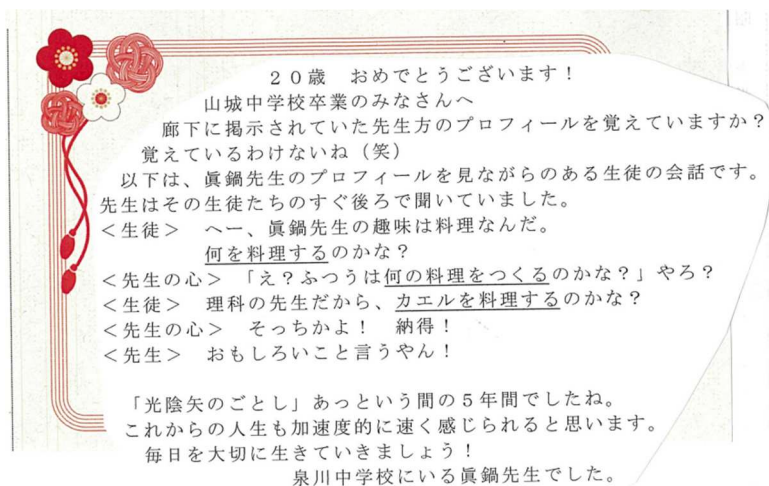 20歳 おめでとうございます!
山城中学校卒業のみなさんへ
廊下に掲示されていた先生方のプロフィールを覚えていますか?
覚えているわけないね(笑)
以下は、眞鍋先生のプロフィールを見ながらのある生徒の会話です。
先生はその生徒たちのすぐ後ろで聞いていました。
<生徒> へー、眞鍋先生の趣味は料理なんだ。
何を料理するのかな?
<先生の心> 「え?ふつうは何の料理をつくるのかな?」やろ?
<生徒> 理科の先生だから、カエルを料理するのかな?
<先生の心> そっちかよ! 納得!
<先生> おもしろいこと言うやん!
「光陰矢のごとし」あっという間の5年間でしたね。
これからの人生も加速度的に速く感じられると思います。
毎日を大切に生きていきましょう!
泉川中学校にいる眞鍋先生でした。